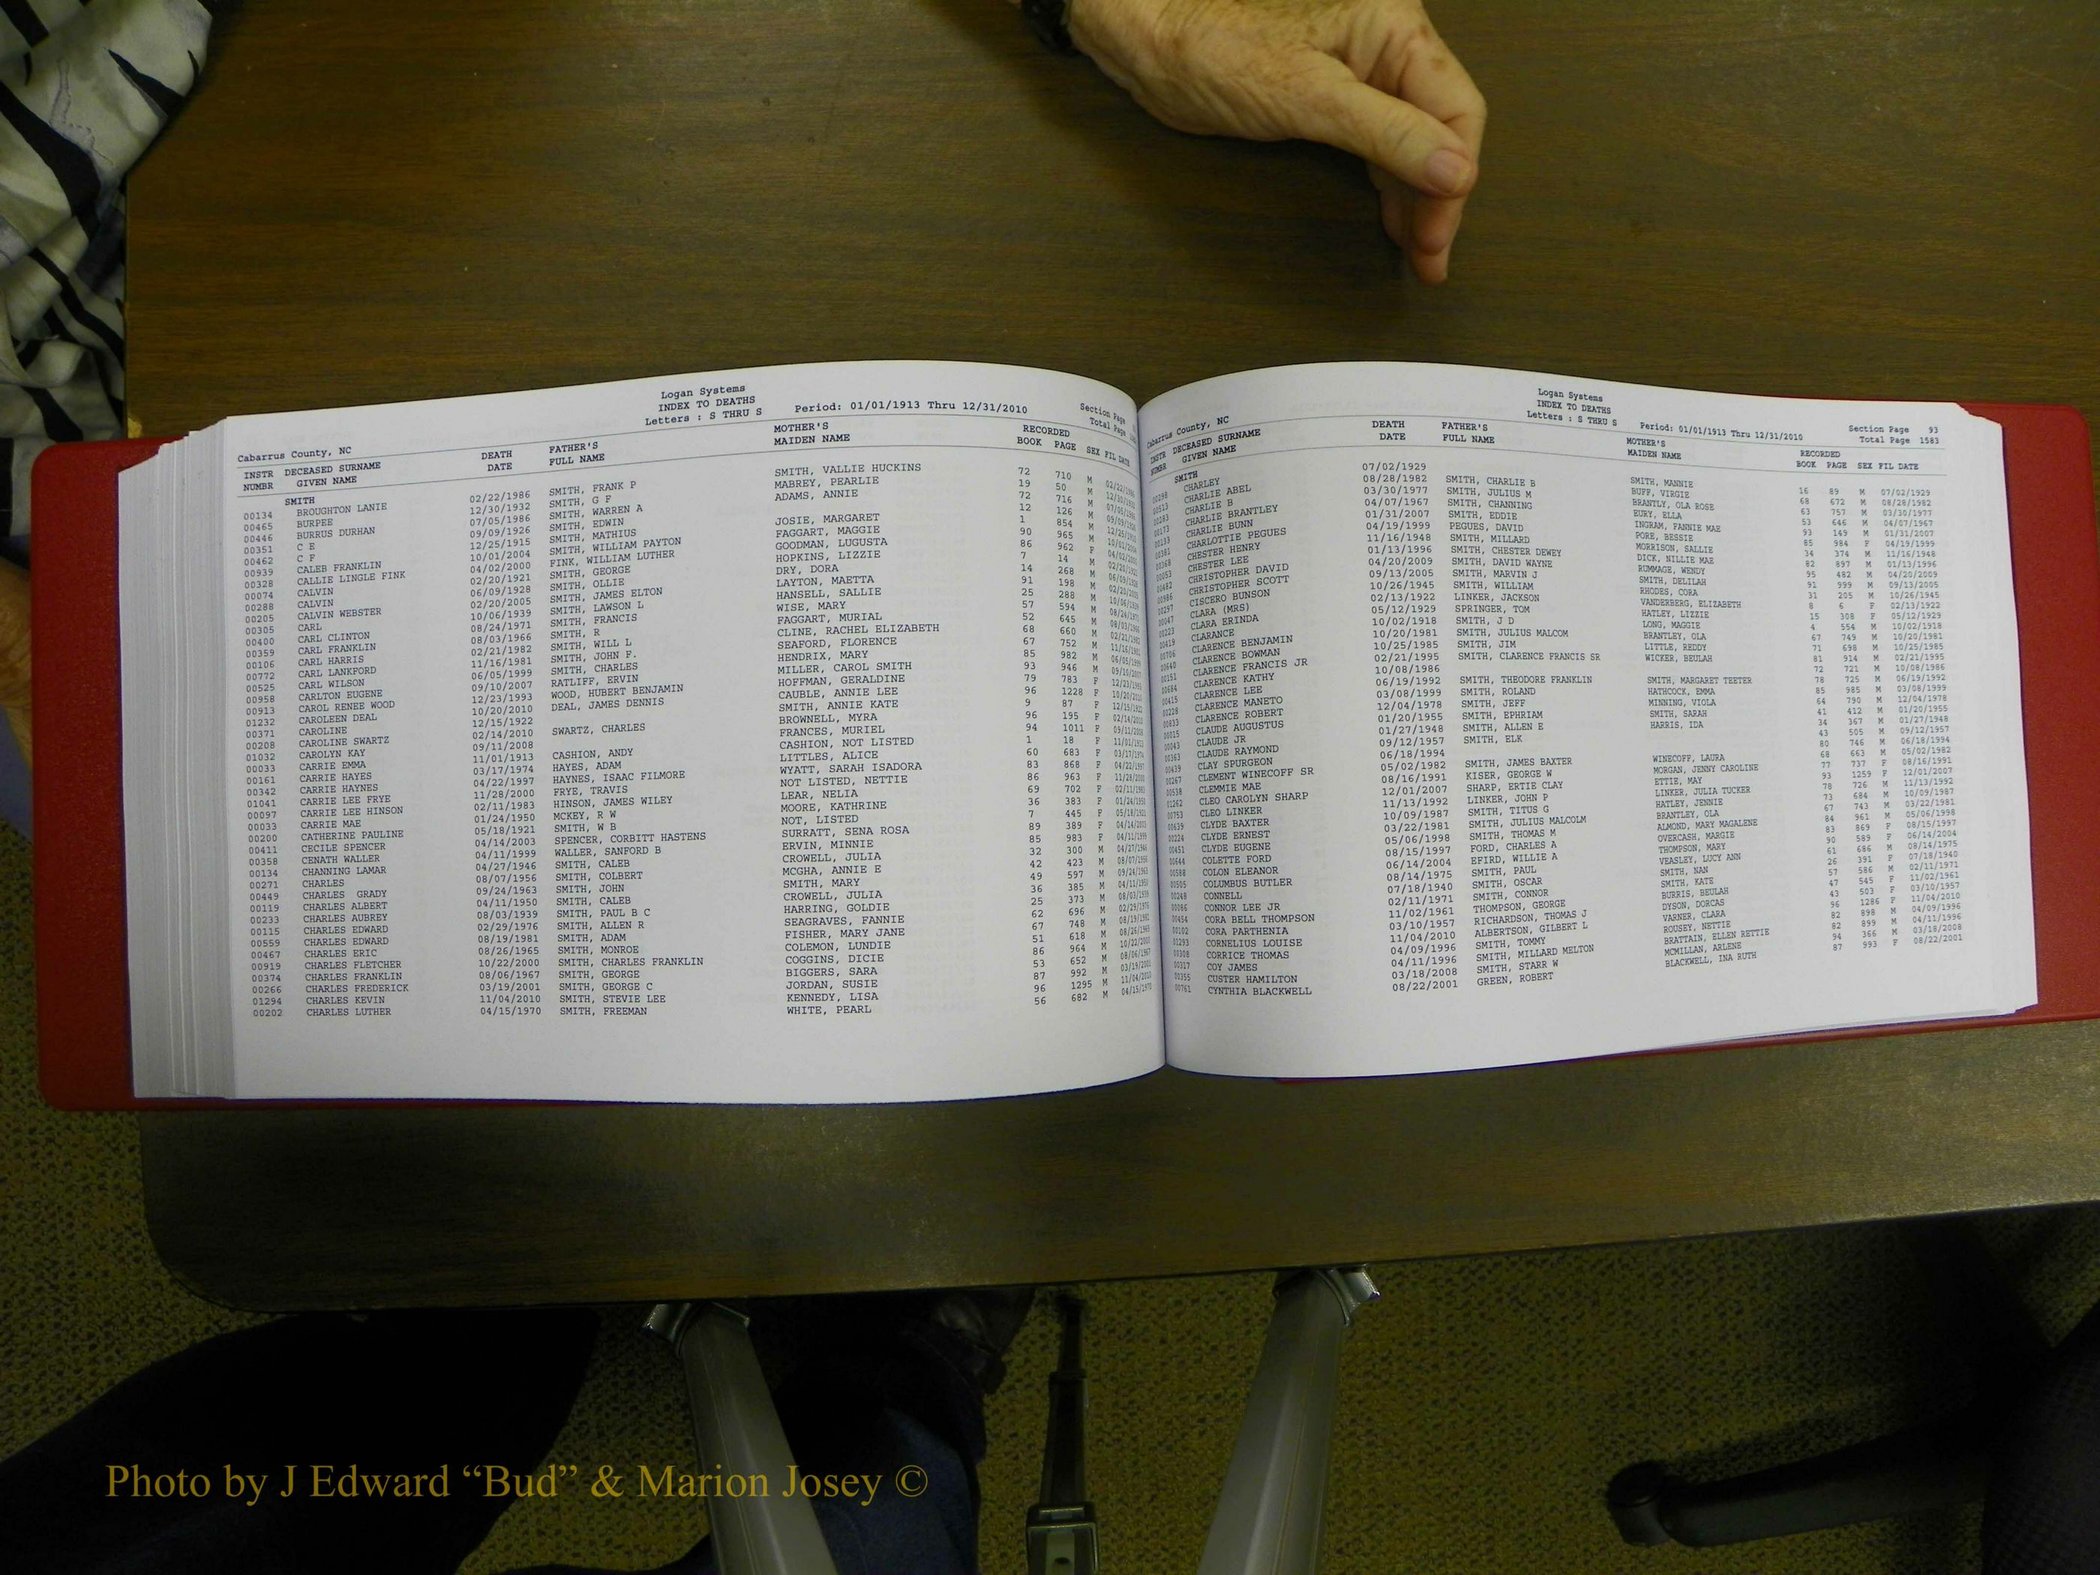 Logan Systems
INDEX TO DEATHS
Letters : S THRU S Period: 01/01/1913 Thru 12/31/2010
Cabarrus County, NC Section Page
Total Page
INSTR DECEASED SURNAME DEATH FATHER'S MOTHER'S RECORDED
NUMBR GIVEN NAME DATE FULL NAME MAIDEN NAME BOOK PAGE SEX FIL DATE
SMITH
00134 BROUGHTON LANIE 02/22/1986 SMITH, FRANK P SMITH, VALLIE HUCKINS 72 710 M 02/22/1986
00465 BURPEE 12/30/1932 SMITH, G F MABREY, PEARLIE 19 50 M 12/30/1932
00446 BURRUS DURHAN 07/05/1986 SMITH, WARREN A ADAMS, ANNIE 72 716 M 07/05/1986
00351 C E 09/09/1926 SMITH, EDWIN 12 126 M 09/09/1926
00462 C F 12/25/1915 SMITH, MATHIUS JOSIE, MARGARET 1 854 M 12/25/1915
00939 CALEB FRANKLIN 10/01/2004 SMITH, WILLIAM PAYTON FAGGART, MAGGIE 90 965 M 10/01/2004
00328 CALLIE LINGLE FINK 04/02/2000 FINK, WILLIAM LUTHER GOODMAN, LUGUSTA 86 962 F 04/02/2000
00074 CALVIN 02/20/1921 SMITH, GEORGE HOPKINS, LIZZIE 7 14 M
00288 CALVIN 06/09/1928 SMITH, OLLIE DRY, DORA 14 268 M 06/09/1928
00205 CALVIN WEBSTER 02/20/2005 SMITH, JAMES ELTON LAYTON, MAETTA 91 198 M 02/20/2005
00305 CARL 10/06/1939 SMITH, LAWSON L HANSELL, SALLIE 25 288 M 10/06/1939
00400 CARL CLINTON 08/24/1971 SMITH, FRANCIS WISE, MARY 57 594 M 08/24/1971
00359 CARL FRANKLIN 08/03/1966 SMITH, R FAGGART, MURIAL 52 645 M 08/03/1966
00106 CARL HARRIS 02/21/1982 SMITH, WILL L CLINE, RACHEL ELIZABETH 68 660 M 02/21/1982
00772 CARL LANKFORD 11/16/1981 SMITH, JOHN F. SEAFORD, FLORENCE 67 752 M 11/16/1981
00525 CARL WILSON 06/05/1999 SMITH, CHARLES HENDRIX, MARY 85 982 M 06/05/1999
00958 CARLTON EUGENE 09/10/2007 RATLIFF, ERVIN MILLER, CAROL SMITH 93 946 M 09/10/2007
00913 CAROL RENEE WOOD 12/23/1993 WOOD, HUBERT BENJAMIN HOFFMAN, GERALDINE 79 783 F 12/23/1993
01232 CAROLEEN DEAL 10/20/2010 DEAL, JAMES DENNIS CAUBLE, ANNIE LEE 96 1228 F 10/20/2010
00371 CAROLINE 12/15/1922 SMITH, ANNIE KATE 9 87 F 12/15/1922
00208 CAROLINE SWARTZ 02/14/2010 SWARTZ, CHARLES BROWNELL, MYRA 96 195 F 02/14/2010
01032 09/11/2008 FRANCES, MURIEL 94 1011 F 09/11/2008
00033 CARRIE EMMA 11/01/1913 CASHION, ANDY CASHION, NOT LISTED 1 18 F 11/01/1913
00161 CARRIE HAYES 03/17/1974 HAYES, ADAM LITTLES, ALICE 60 683 F 03/17/1974
00342 CARRIE HAYNES 04/22/1997 HAYNES, ISAAC FILMORE WYATT, SARAH ISADORA 83 868 F 04/22/1997
01041 CARRIE LEE FRYE 11/28/2000 FRYE, TRAVIS NOT LISTED, NETTIE 86 963 F 11/28/2000
00097 CARRIE LEE HINSON 02/11/1983 HINSON, JAMES WILEY LEAR, NELIA 69 702 F 02/11/1983
00033 CARRIE MAE 01/24/1950 MCKEY, R W MOORE, KATHRINE 36 383 F 01/24/1950
00200 CATHERINE PAULINE 05/18/1921 SMITH, W B NOT, LISTED 7 445 F 05/18/1921
00411 CECILE SPENCER 04/14/2003 SPENCER, CORBITT HASTENS SURRATT, SENA ROSA 89 389 F 04/14/2003
00358 CENATH WALLER 04/11/1999 WALLER, SANFORD B ERVIN, MINNIE 85 983 F 04/11/1999
00134 CHANNING LAMAR 04/27/1946 SMITH, CALEB CROWELL, JULIA 32 300 M 04/27/1946
00271 CHARLES 08/07/1956 SMITH, COLBERT MCGHA, ANNIE E 42 423 M 08/07/1956
00449 CHARLES GRADY 09/24/1963 SMITH, JOHN SMITH, MARY 49 597 M 09/24/1963
00119 CHARLES ALBERT 04/11/1950 SMITH, CALEB CROWELL, JULIA 36 385 M 04/11/1950
00233 CHARLES AUBREY 08/03/1939 SMITH, PAUL B C HARRING, GOLDIE 25 373 M 08/03/1939
00115 CHARLES EDWARD 02/29/1976 SMITH, ALLEN R SEAGRAVES, FANNIE 62 696 M 02/29/1976
00559 CHARLES EDWARD 08/19/1981 SMITH, ADAM FISHER, MARY JANE 67 748 M 08/19/1981
00467 CHARLES ERIC 08/26/1965 SMITH, MONROE COLEMON, LUNDIE 51 618 M 08/26/1965
00919 CHARLES FLETCHER 10/22/2000 SMITH, CHARLES FRANKLIN COGGINS, DICIE 86 964 M 10/22/2000
00374 CHARLES FRANKLIN 08/06/1967 SMITH, GEORGE BIGGERS, SARA 53 652 M 08/06/1967
00266 CHARLES FREDERICK 03/19/2001 SMITH, GEORGE C JORDAN, SUSIE 87 992 M 03/19/2001
01294 CHARLES KEVIN 11/04/2010 SMITH, STEVIE LEE KENNEDY, LISA 96 1295 M 11/04/2010
00202 CHARLES LUTHER 04/15/1970 SMITH, FREEMAN WHITE, PEARL 56 682 M 04/15/1970
Logan Systems
INDEX TO DEATHS
Letters : S THRU S Period: 01/01/1913 Thru 12/31/2010
Cabarrus County, NC Section Page 93
Total Page 1583
INSTR DECEASED SURNAME DEATH FATHER'S MOTHER'S RECORDED
NUMBR GIVEN NAME DATE FULL NAME MAIDEN NAME BOOK PAGE SEX FIL DATE
SMITH
00298 CHARLEY 07/02/1929 SMITH, MANNIE 16 89 M 07/02/1929
00513 CHARLIE ABEL 08/28/1982 SMITH, CHARLIE B BUFF, VIRGIE 68 672 M 08/28/1982
00283 CHARLIE B 03/30/1977 SMITH, JULIUS M BRANTLY, OLA ROSE 63 757 M 03/30/1977
00173 CHARLIE BRANTLEY 04/07/1967 SMITH, CHANNING EURY, ELLA 53 646 M 04/07/1967
00193 CHARLIE BUNN 01/31/2007 SMITH, EDDIE INGRAM, FANNIE MAE 93 149 M 01/31/2007
00381 CHARLOTTIE PEGUES 04/19/1999 PEGUES, DAVID PORE, BESSIE 85 984 F 04/19/1999
00368 CHESTER HENRY 11/16/1948 SMITH, MILLARD MORRISON, SALLIE 34 374 M 11/16/1948
00053 CHESTER LEE 01/13/1996 SMITH, CHESTER DEWEY DICK, NILLIE MAE 82 897 M 01/13/1996
00482 CHRISTOPHER DAVID 04/20/2009 SMITH, DAVID WAYNE RUMMAGE, WENDY 95 482 M 04/20/2009
00986 CHRISTOPHER SCOTT 09/13/2005 SMITH, MARVIN J SMITH, DELILAH 91 999 M 09/13/2005
00297 CISCERO BUNSON 10/26/1945 SMITH, WILLIAM RHODES, CORA 31 205 M 10/26/1945
00047 CLARA (MRS) 02/13/1922 LINKER, JACKSON VANDERBERG, ELIZABETH 8 6 F 02/13/1922
00223 CLARA ERINDA 05/12/1929 SPRINGER, TOM HATLEY, LIZZIE 15 308 F 05/12/1929
00419 CLARANCE 10/02/1918 SMITH, J D LONG, MAGGIE 4 554 M 10/02/1918
00706 CLARENCE BENJAMIN 10/20/1981 SMITH, JULIUS MALCOM BRANTLEY, OLA 67 749 M 10/20/1981
00640 CLARENCE BOWMAN 10/25/1985 SMITH, JIM LITTLE, REDDY 71 698 M 10/25/1985
00151 CLARENCE FRANCIS JR 02/21/1995 SMITH, CLARENCE FRANCIS SR WICKER, BEULAH 81 914 M 02/21/1995
00684 CLARENCE KATHY 10/08/1986 72 721 M 10/08/1986
00415 CLARENCE LEE 06/19/1992 SMITH, THEODORE FRANKLIN SMITH, MARGARET TEETER 78 725 M 06/19/1992
00228 CLARENCE MANETO 03/08/1999 SMITH, ROLAND HATHCOCK, EMMA 85 985 M 03/08/1999
00833 CLARENCE ROBERT 12/04/1978 SMITH, JEFF MINNING, VIOLA 64 790 M 12/04/1978
00015 CLAUDE AUGUSTUS 01/20/1955 SMITH, EPHRIAM SMITH, SARAH 41 412 M 01/20/1955
00043 CLAUDE JR 01/27/1948 SMITH, ALLEN E HARRIS, IDA 34 367 M 01/27/1948
00363 CLAUDE RAYMOND 09/12/1957 SMITH, ELK 43 505 M 09/12/1957
00439 CLAY SPURGEON 06/18/1994 80 746 M 06/18/1994
00267 CLEMENT WINECOFF SR 05/02/1982 SMITH, JAMES BAXTER WINECOFF, LAURA 68 663 M 05/02/1982
00538 CLEMMIE MAE 08/16/1991 KISER, GEORGE W MORGAN, JENNY CAROLINE 77 737 F 08/16/1991
01262 CLEO CAROLYN SHARP 12/01/2007 SHARP, ERTIE CLAY ETTIE, MAY 93 1259 F 12/01/2007
00753 CLEO LINKER 11/13/1992 LINKER, JOHN P LINKER, JULIA TUCKER 78 726 M 11/13/1992
00639 CLYDE BAXTER 10/09/1987 SMITH, TITUS G HATLEY, JENNIE 73 684 M 10/09/1987
00224 CLYDE ERNEST 03/22/1981 SMITH, JULIUS MALCOLM BRANTLEY, OLA 67 743 M 03/22/1981
00451 CLYDE EUGENE 05/06/1998 SMITH, THOMAS M ALMOND, MARY MAGALENE 84 961 M 05/06/1998
00644 COLETTE FORD 08/15/1997 FORD, CHARLES A OVERCASH, MARGIE 83 869 F 08/15/1997
00588 COLON ELEANOR 06/14/2004 EFIRD, WILLIE A THOMPSON, MARY 90 589 F 06/14/2004
00505 COLUMBUS BUTLER 08/14/1975 SMITH, PAUL VEASLEY, LUCY ANN 61 686 M 08/14/1975
00248 CONNELL 07/18/1940 SMITH, OSCAR SMITH, NAN 26 391 F 07/18/1940
00086 CONNOR LEE JR 02/11/1971 SMITH, CONNOR SMITH, KATE 57 586 M 02/11/1971
00454 CORA BELL THOMPSON 11/02/1961 THOMPSON, GEORGE BURRIS, BEULAH 47 545 F 11/02/1961
00102 CORA PARTHENIA 03/10/1957 RICHARDSON, THOMAS J DYSON, DORCAS 43 503 F 03/10/1957
01293 CORNELIUS LOUISE 11/04/2010 ALBERTSON, GILBERT L VARNER, CLARA 96 1286 F 11/04/2010
00308 CORRICE THOMAS 04/09/1996 SMITH, TOMMY ROUSEY, NETTIE 82 898 M 04/09/1996
00317 COY JAMES 04/11/1996 SMITH, MILLARD MELTON BRATTAIN, ELLEN RETTIE 82 899 M 04/11/1996
00355 CUSTER HAMILTON 03/18/2008 SMITH, STARR W MCMILLAN, ARLENE 94 366 M 03/18/2008
00761 CYNTHIA BLACKWELL 08/22/2001 GREEN, ROBERT BLACKWELL, INA RUTH 87 993 F 08/22/2001
Photo by J Edward “Bud” & Marion Josey ©